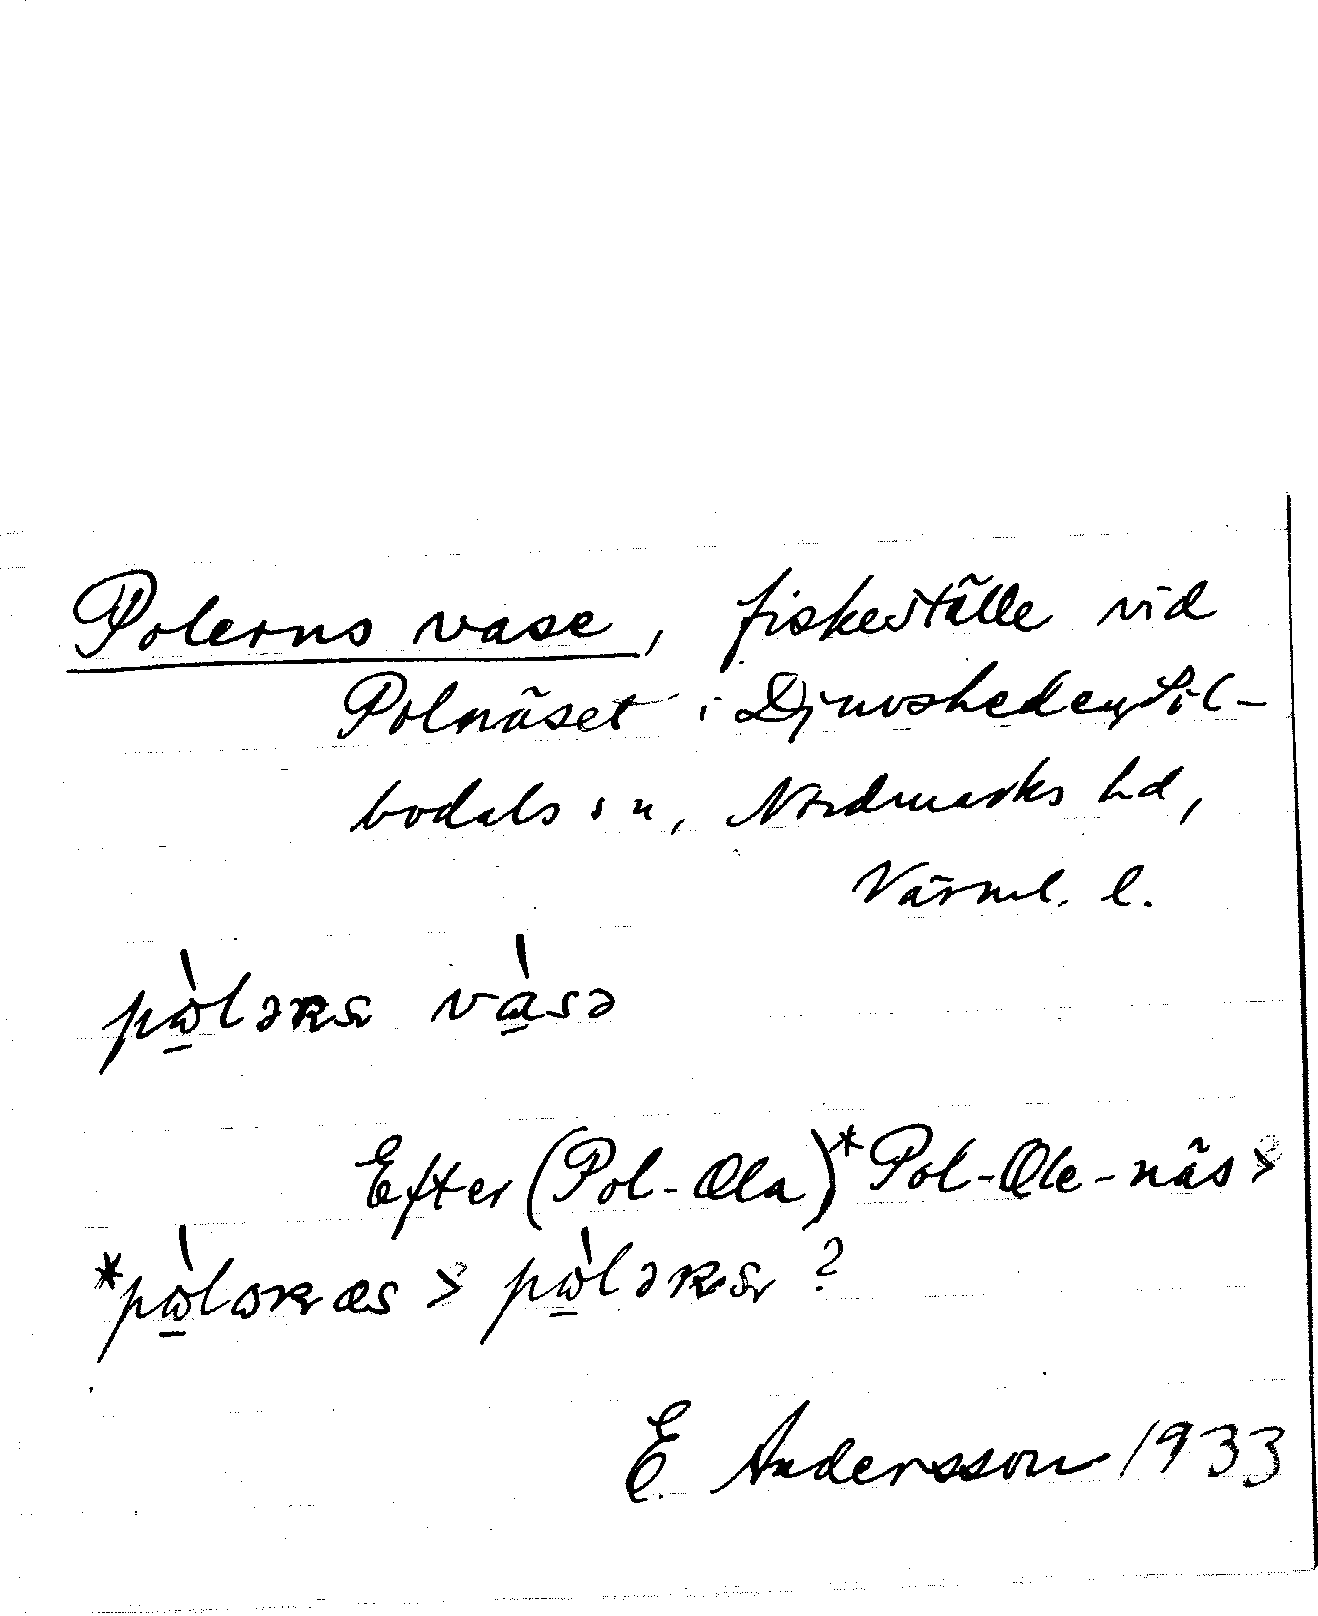 Polerns vase, fiskeställe vid
Polnäset i Djuvsheden, Sil-
bodals sn, Nordmarks hd,
Värml. l.
pὼlərs vàsə
Efter (Pol-Ola) *Pol-Ole-näs >
*pὼlərnæs > pὼlərs ?
E Andersson 1933